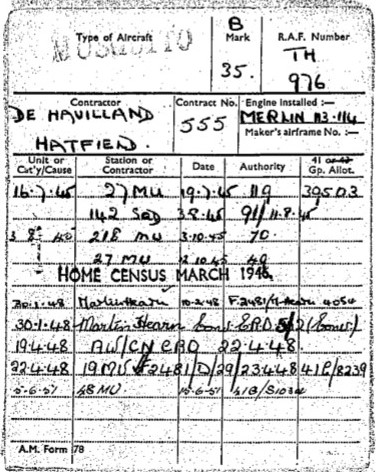 Type of Aircraft
MOSQUITO
B
Mark
35.
R.A.F. Number
TH
976
Contractor
DE HAVILLAND
HATFIELD.
Contract No.
555
Engine Installed :—
MERLIN 113-114
Maker's airframe No. :—
Unit or Cat'y/Cause Station or Contractor Date Authority 41 Gp. Allot.
16.7.45 27 MU 19.7.45 119 39503
142 3.8.45 91/11.8.45
218 MU 3.10.45 70.
27 MU 12.10.45 49
HOME CENSUS MARCH 1946.
30.1.48 Martin Hearn 10.2.48 4054
30.1.48 Martin Hearn
19.4.48 AW/CN 22.4.48.
22.4.48 19 MU 2481/D/29/23.4.48 41P/8239
48 MU.
A.M. Form 78